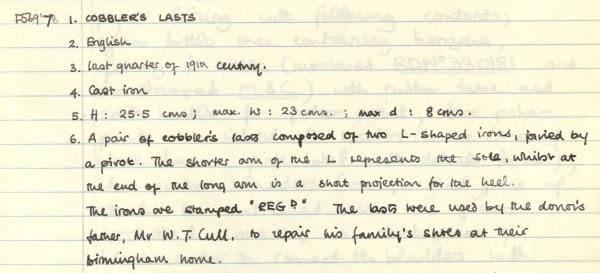 F569'76 1. COBBLER'S LASTS
2. English
3. last quarter of 19th century.
4. Cast iron
5. H : 25.5 cms ; max. W : 23 cms. ; max d : 8 cms.
6. A pair of cobbler's lasts composed of two L-shaped irons, joined by
a pivot. The shorter arm of the L represents the sole, whilst at
the end of the long arm is a short projection for the heel.
The irons are stamped "REGD." The lasts were used by the donor's
father, Mr W.T. Cull, to repair his family's shoes at their
Birmingham home.